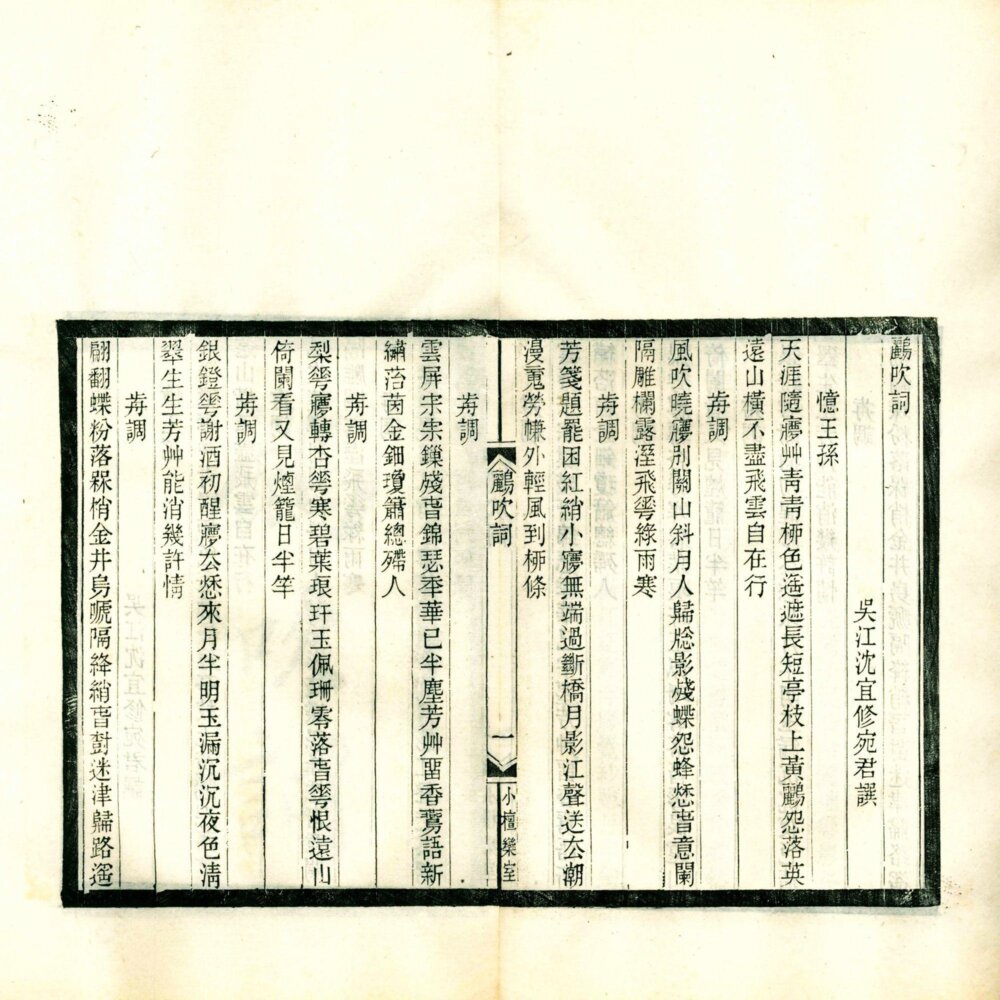 鸝吹詞
吳江沈宜修宛君譔
憶王孫
天涯隨㝱艸靑靑桺色遙遮長短亭枝上黃鸝怨落英
遠山橫不盡飛雲自在行
歬調
風吹曉㝱別關山斜月人歸牕影殘蝶怨蜂愁旾意闌
隔雕欄露溼飛蕐綠雨寒
歬調
芳箋題罷困紅綃小㝱無端過斷橋月影江聲送厺潮
漫䰟勞㡘外輕風到桺條
鸝吹詞
一
小檀欒室
歬調
雲屏寂寂鏁殘旾錦瑟秊華已半塵芳艸畱香鷰語新
繡落茵金鈿瓊簫總殢人
歬調
梨蕐㝱轉杏蕐寒碧葉琅玕玉佩珊零落旾蕐恨遠山
倚闌看又見煙籠日半竿
歬調
銀鐙蕐謝酒初醒㝱厺愁來月半明玉漏沉沉夜色淸
翠生生芳艸能消幾許情
歬調
翩翻蝶粉落槑梢金井烏嗁隔絳綃旾對迷津歸路遙